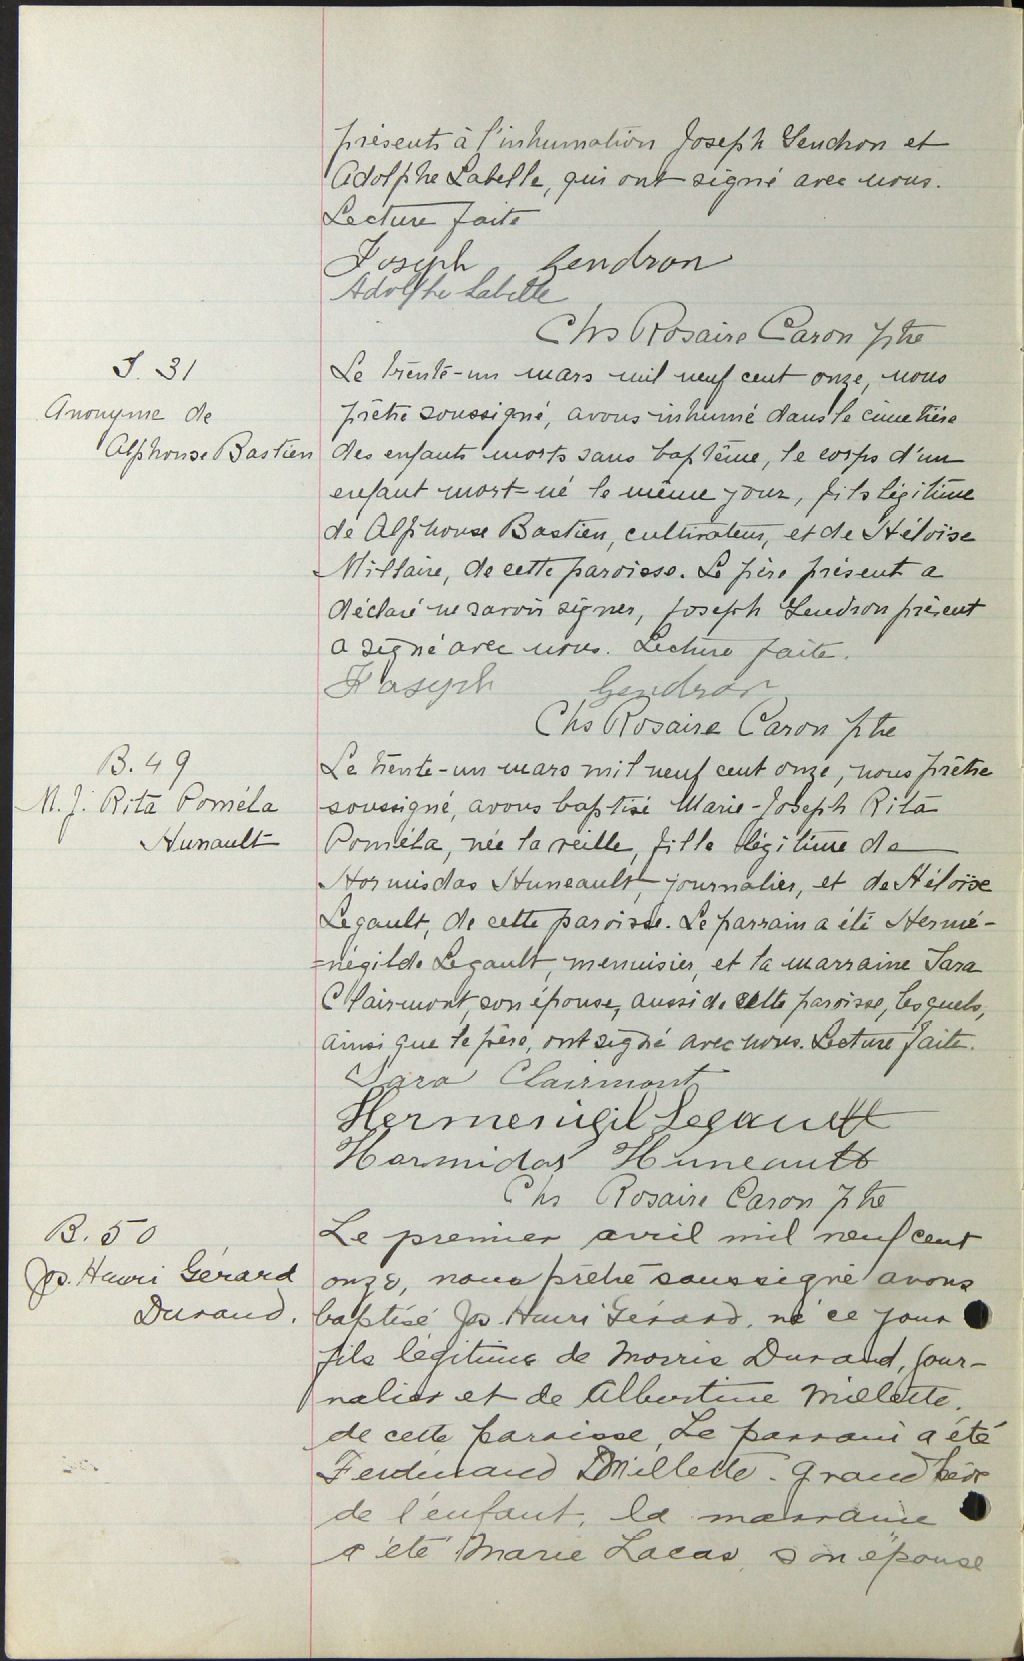 présents à l'inhumation Joseph Gendron et
Adolphe Labelle, qui ont signé avec nous.
Lecture faite
Joseph Gendron
Adolphe Labelle
Chs Rosaire Caron ptre
S. 31
Anonyme de
Alphonse Bastien
Le trente-un mars mil neuf cent onze, nous
prêtre soussigné, avons inhumé dans le cimetière
des enfants morts sans baptême, le corps d'un
enfant mort-né le même jour, fils légitime
de Alphonse Bastien, cultivateur, et de Héloïse
Millaire, de cette paroisse. Le père présent a
déclaré ne savoir signer, Joseph Gendron présent
a signé avec nous. Lecture faite.
Joseph Gendron
Chs Rosaire Caron ptre
B. 49
M. J. Rita Poméla
Hunault
Le trente-un mars mil neuf cent onze, nous prêtre
soussigné, avons baptisé Marie-Joseph Rita
Poméla, née la veille, fille légitime de
Hormisdas Huneault, journalier, et de Héloïse
Legault, de cette paroisse. Le parrain a été Hermé-
=négilde Legault, menuisier, et la marraine Sara
Clairmont, son épouse, aussi de cette paroisse, lesquels,
ainsi que le père, ont signé avec nous. Lecture faite.
Sara Clairmont
Hermenigil Legault
Hormidas Huneault
Chs Rosaire Caron ptre
B. 50
Jos. Henri Gérard
Durand.
Le premier avril mil neuf cent
onze, nous prêtre soussigné avons
baptisé Jos Henri Gérard, né ce jour
fils légitime de Morris Durand, jour-
nalier et de Albertine Millette.
de cette paroisse, Le parrain a été
Ferdinand Millette. grand père
de l'enfant, la marraine
a été Marie Lacas, son épouse